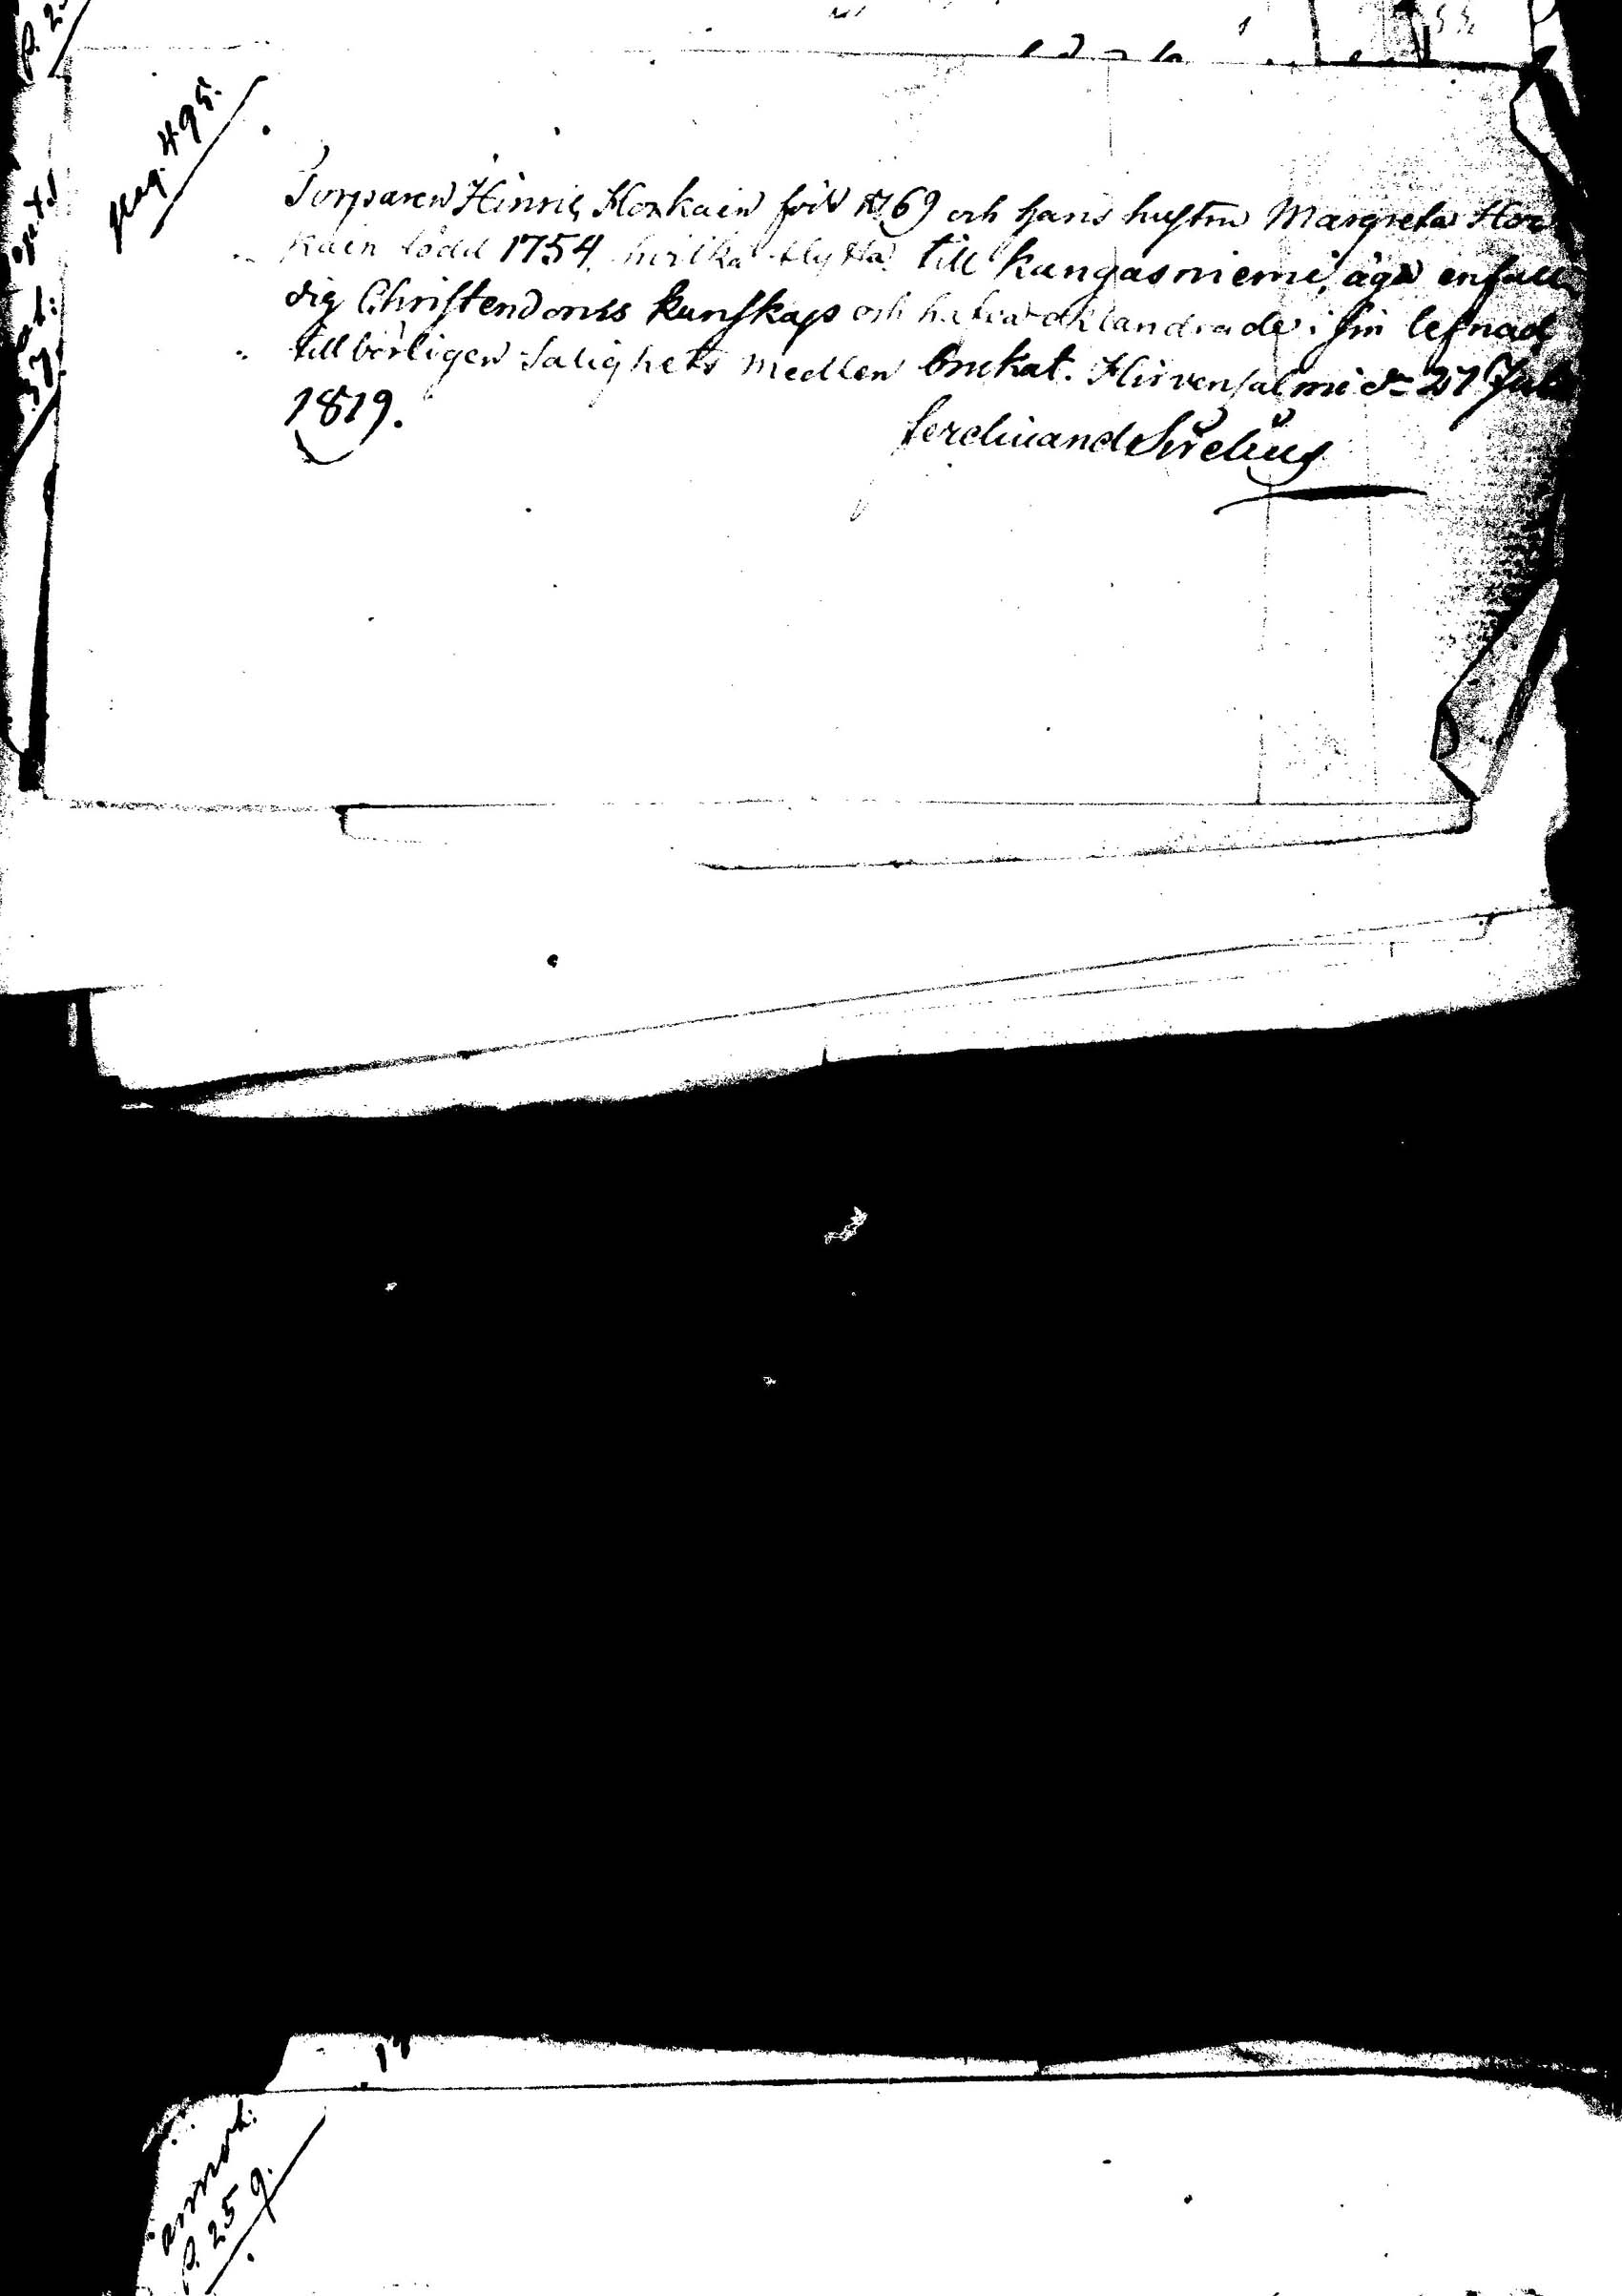 pag. 495.
Torparen Hinric Korkain född 1769 och hans hustru Margreta Kor
kain född 1754, hvilka flytta till Kangasniemi, äga enfall
dig Christendoms kunskap och hafva oklandrade i sin lefnad
tillbörligen Salighets medlen brukat. Hirvensalmi d. 27 Juli
1819.
Ferdinand Sirelius
annot:
p. 259.